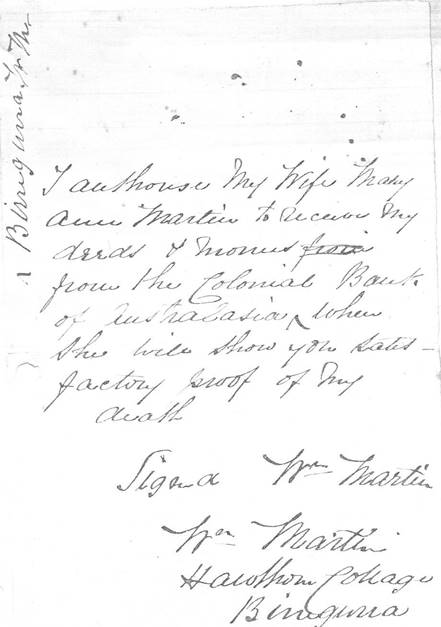 I authorise My Wife Mary
Ann Martin to receive My
deeds & monies from
from the Colonial Bank
of Australasia, when
She will show you satis-
factory proof of My
death
Signed Wm Martin
Wm Martin
Hawthorn Cottage
Birregurra
Birregurra